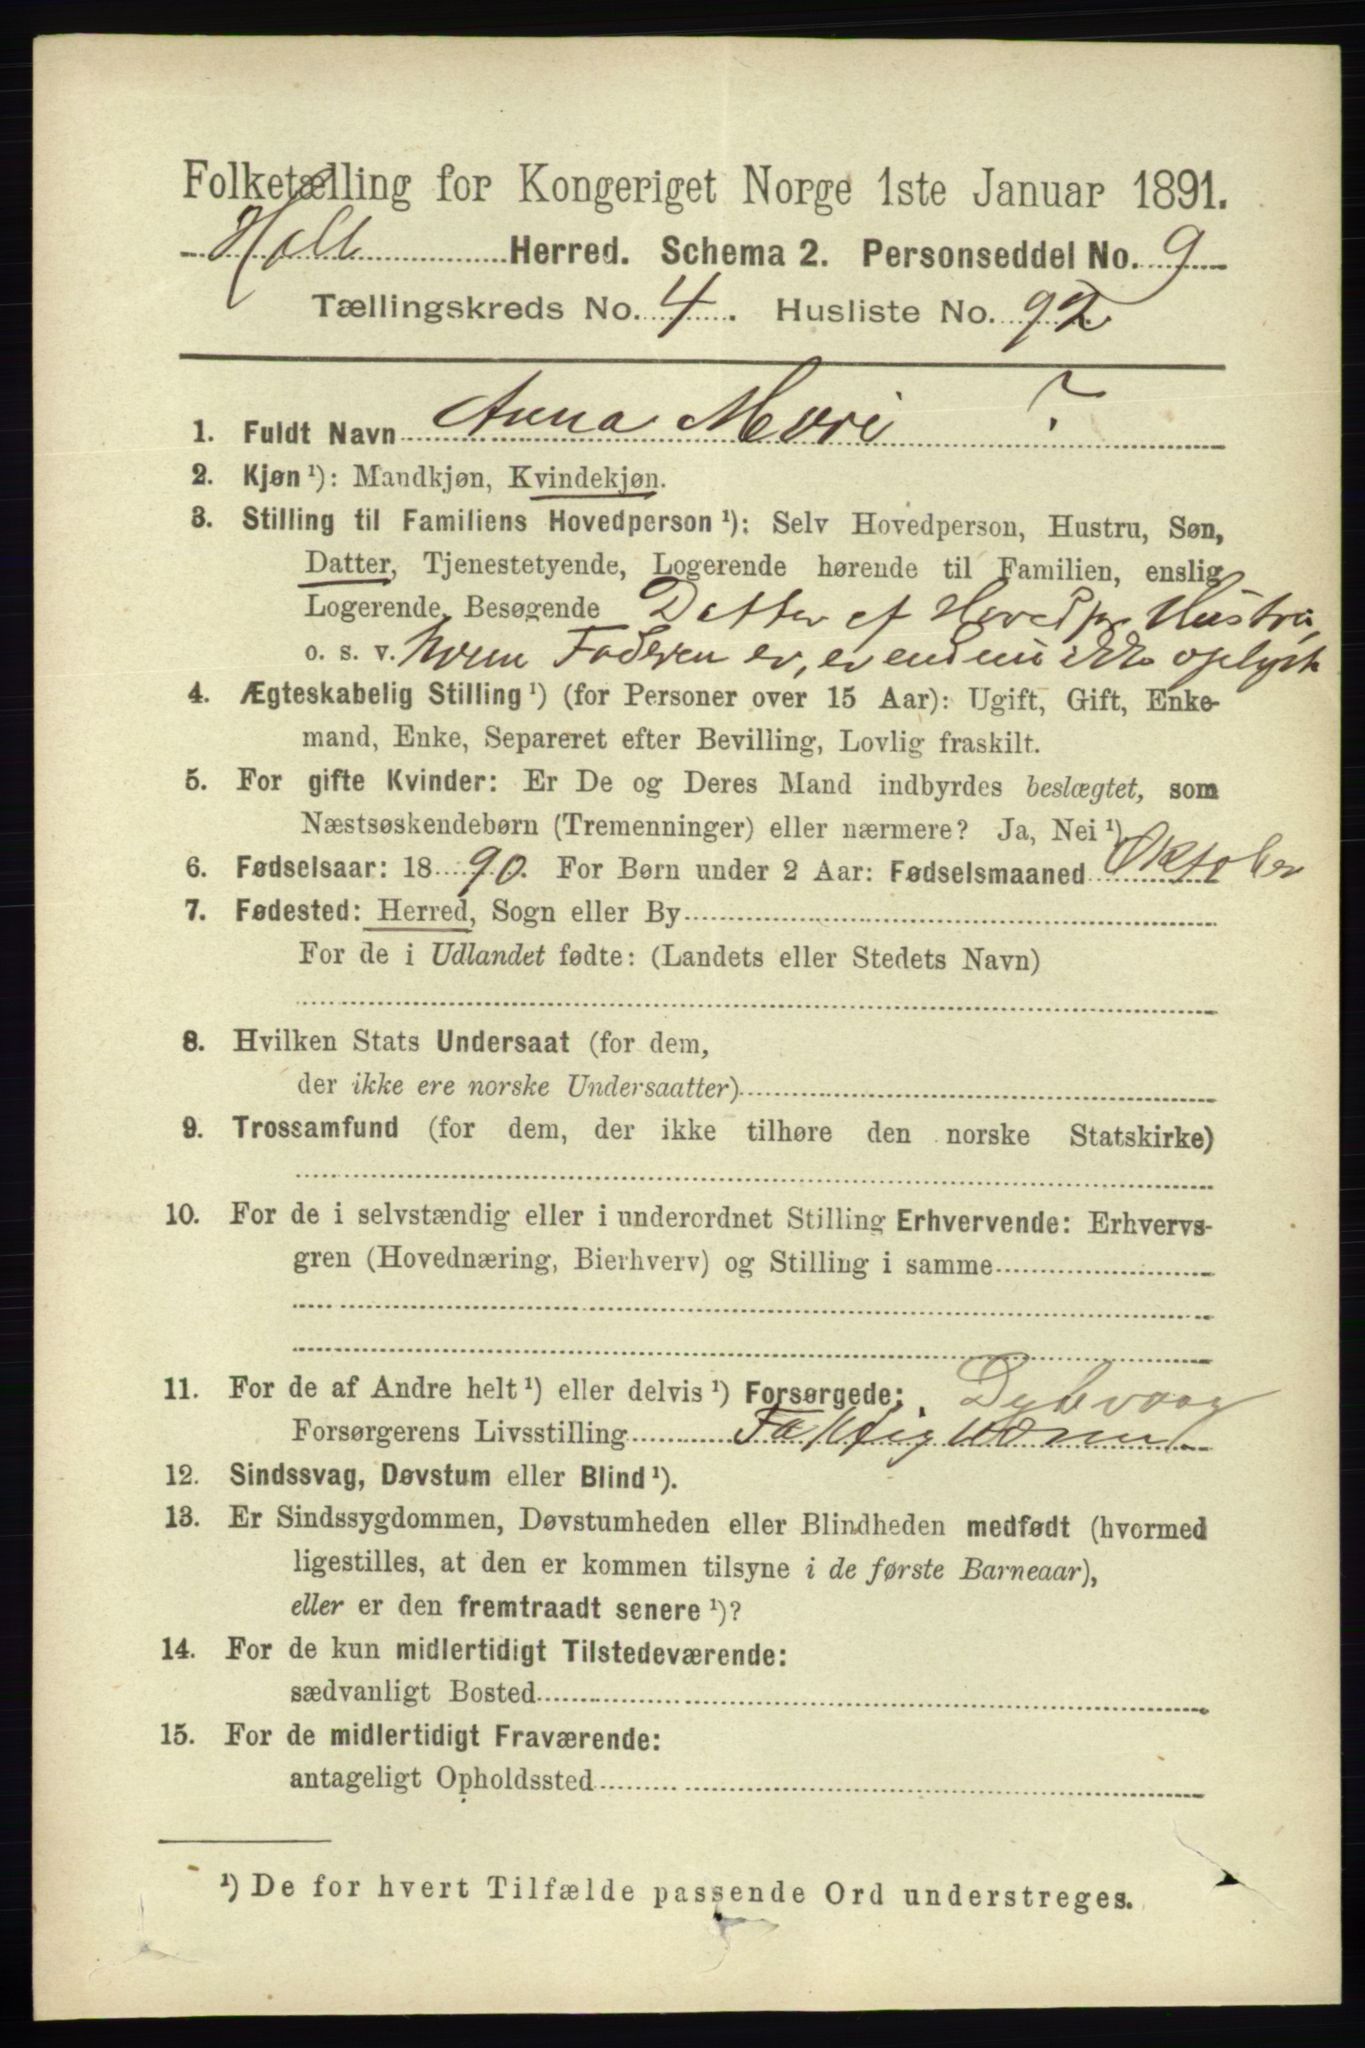 Folketælling for Kongeriget Norge 1ste Januar 1891.
Holt Herred. Schema 2. Personseddel No. 9
Tællingskreds No. 4. Husliste No. 92
1. Fuldt Navn Anna Mari ?
2. Kjøn ¹): Mandkjøn, Kvindekjøn.
3. Stilling til Familiens Hovedperson ¹): Selv Hovedperson, Hustru, Søn,
Datter, Tjenestetyende, Logerende hørende til Familien, enslig
Logerende, Besøgende Datter af Hovedp. Hustru,
o. s. v. hvem Faderen er, er endnu ikke oplyst
4. Ægteskabelig Stilling ¹) (for Personer over 15 Aar): Ugift, Gift, Enke-
mand, Enke, Separeret efter Bevilling, Lovlig fraskilt.
5. For gifte Kvinder: Er De og Deres Mand indbyrdes beslægtet, som
Næstsøskendebørn (Tremenninger) eller nærmere? Ja, Nei ¹)
6. Fødselsaar: 1890. For Børn under 2 Aar: Fødselsmaaned Oktober
7. Fødested: Herred, Sogn eller By
For de i Udlandet fødte: (Landets eller Stedets Navn)
8. Hvilken Stats Undersaat (for dem,
der ikke ere norske Undersaatter)
9. Trossamfund (for dem, der ikke tilhøre den norske Statskirke)
10. For de i selvstændig eller i underordnet Stilling Erhvervende: Erhvervs-
gren (Hovednæring, Bierhverv) og Stilling i samme
11. For de af Andre helt ¹) eller delvis ¹) Forsørgede: Dybvaag
Forsørgerens Livsstilling Fattigvæsen
12. Sindssvag, Døvstum eller Blind ¹).
13. Er Sindssygdommen, Døvstumheden eller Blindheden medfødt (hvormed
ligestilles, at den er kommen tilsyne i de første Barneaar),
eller er den fremtraadt senere ¹)?
14. For de kun midlertidigt Tilstedeværende:
sædvanligt Bosted
15. For de midlertidigt Fraværende:
antageligt Opholdssted
¹) De for hvert Tilfælde passende Ord understreges.